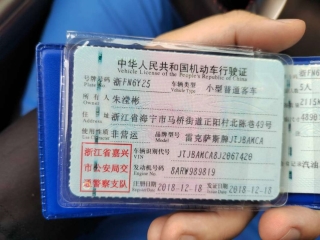 中华人民共和国机动车行驶证
Vehicle License of the People's Republic of China
号牌号码 浙FN6Y25 车辆类型 小型普通客车
Plate No. Vehicle Type
所有人 朱滢彬
Owner
住址 浙江省海宁市马桥街道正阳村北陈卷49号
使用性质 非营运 品牌型号 雷克萨斯牌JTJBAMCA
Model
浙江省嘉兴
市公安局交
通警察支队
车辆识别代号 JTJBAMCA8J2067420
VIN
发动机号码 8ARW989819
Engine No.
注册日期 2018-12-18 发证日期 2018-12-18